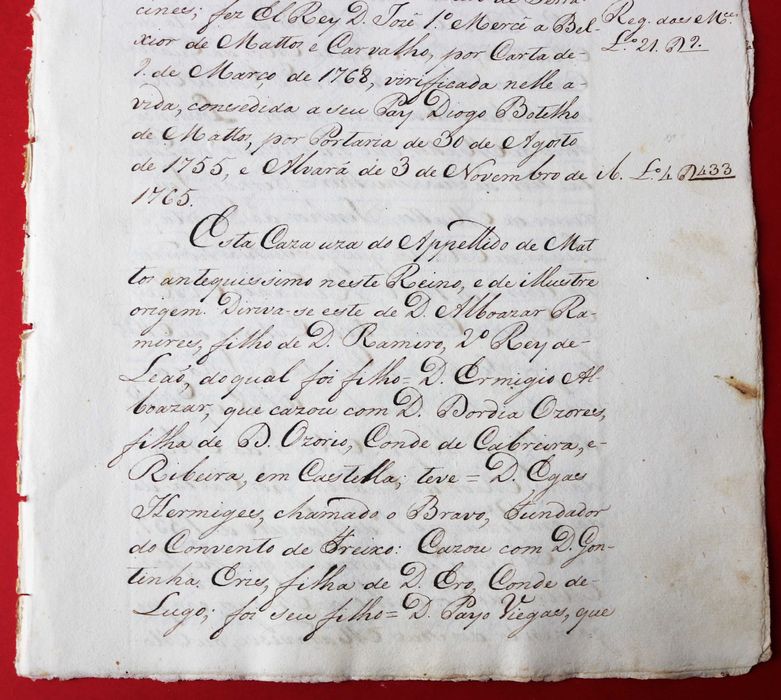 cines; fez El Rey D. Jozé 1.º Mercê a Bel-
Reg. das M.ces
xior de Mattos e Carvalho, por Carta de-
L.º 21. P 9.
9. de Março de 1768, virificada nelle a-
vida, concedida a seu Pay Diogo Botelho
de Mattos, por Portaria de 30 de Agosto
de 1755, e Alvará de 3 de Novembro de
ib. L.º 4 P 433
1765.
Esta Caza uza do Appellido de Mat
tos antequissimo neste Reino, e de illustre
origem. Diriva-se este de D. Alboazar Ra-
mires, filho de D. Ramiro, 2.º Rey de-
Leaõ, do qual foi filho = D. Ermigio Al-
boazar, que cazou com D. Bordia Ozores,
filha de B. Ozorio, Conde de Cabreira, e-
Ribeira, em Castella; teve = D. Egas
Hermiges, chamado o Bravo, Fundador
do Convento de Freixo: Cazou com D. Gon-
tinha Eris, filha de D. Ero, Conde de-
Lugo; foi seu filho = D. Payo Viegas, que